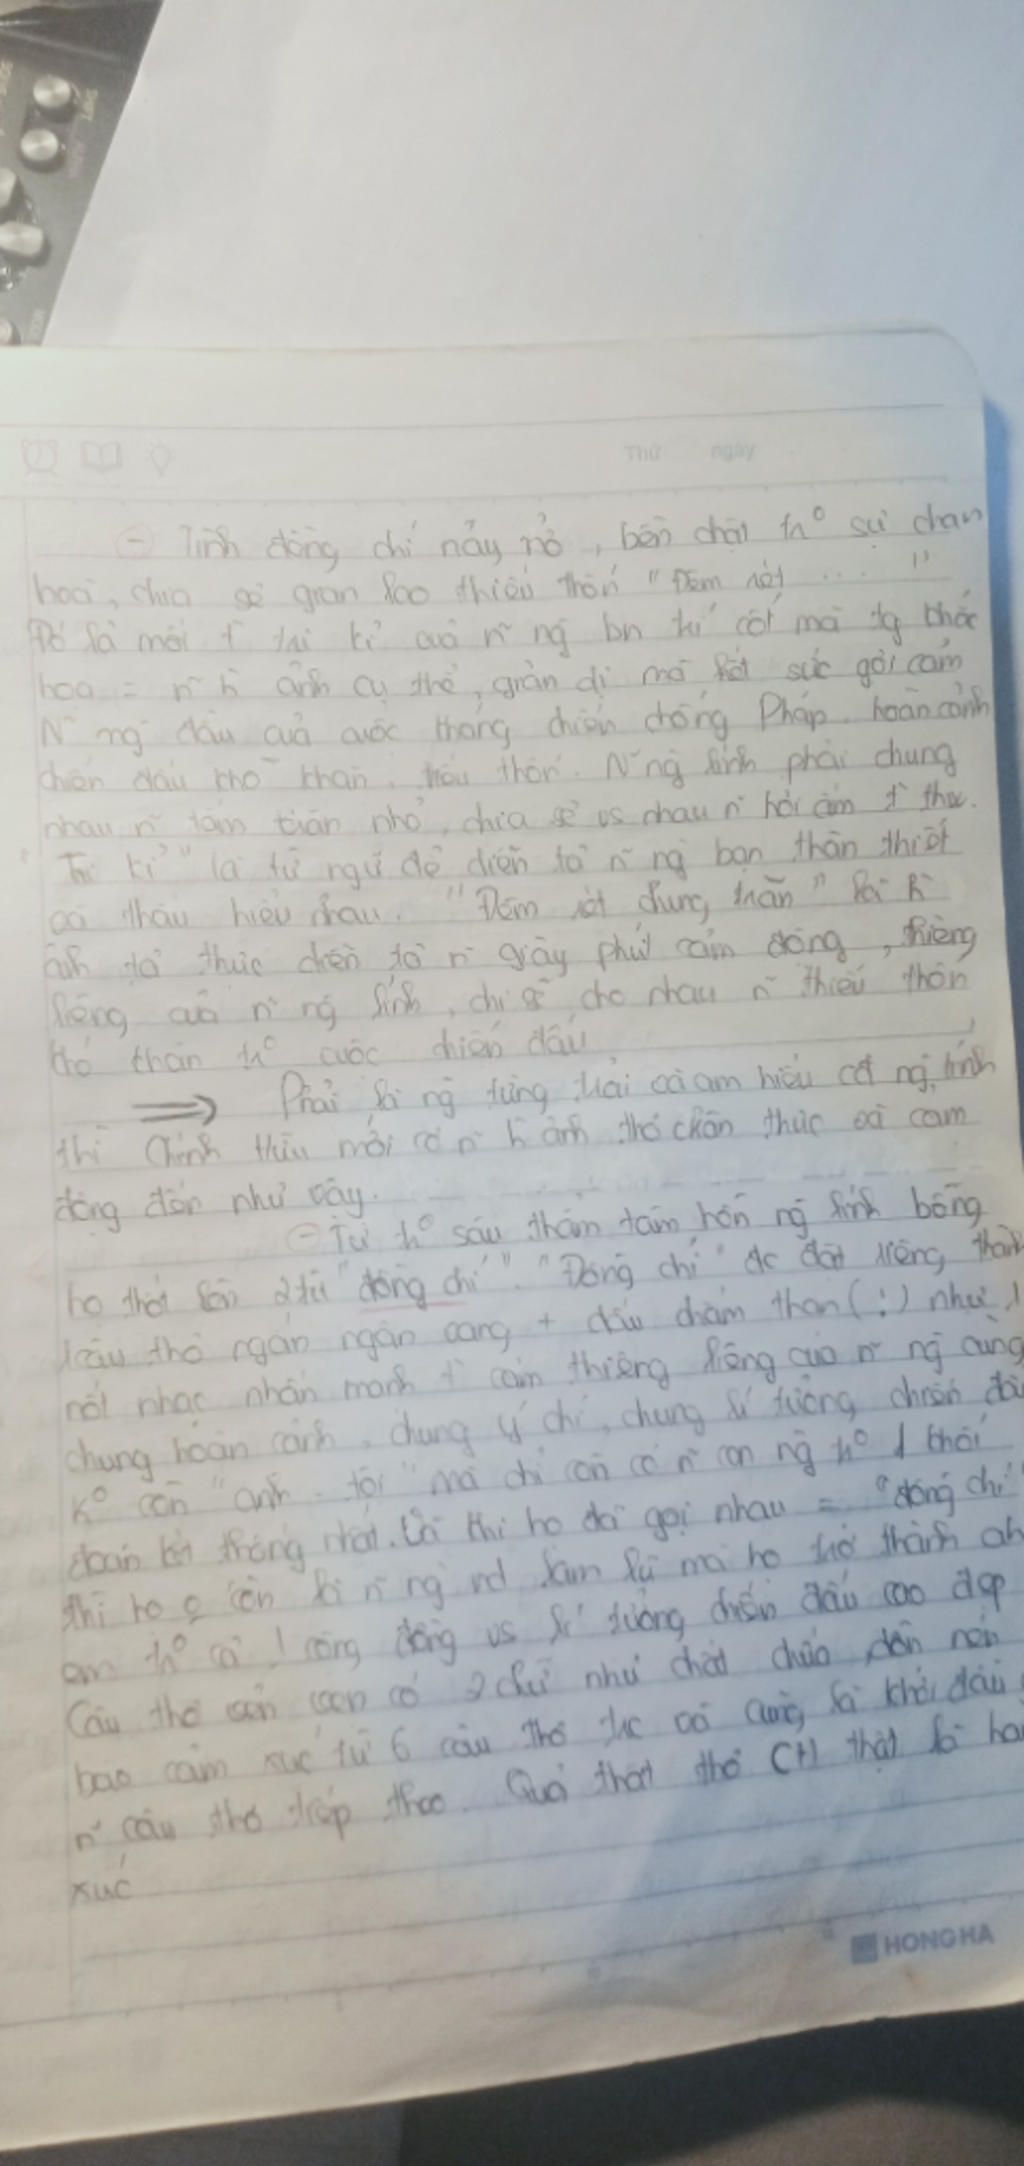 Thứ ngày
- Tình đồng chí nảy nở, bền chặt tr° sự chan
hoà, chia sẻ gian lao thiếu thốn "Đêm rét .... "
Đó là mối t tri kỉ của n~ ng bn chí cốt mà tg khắc
hoạ = n~ h ảnh cụ thể, giản dị mà hết sức gợi cảm
N~ ng đầu của cuộc kháng chiến chống Pháp. hoàn cảnh
chiến đấu khó khăn, thiếu thốn. N~ ng lính phải chung
nhau n~ tấm chăn nhỏ, chia sẻ vs nhau n~ hơi ấm
Tri kỉ" là từ ngữ để diễn tả n~ ng bạn thân thiết
và thấu hiểu nhau. "Đêm rét chung chăn" là h
ảnh tả thực diễn tả n~ giây phút cảm động, thiêng
liêng của n~ ng lính, chia sẻ cho nhau n~ thiếu thốn
khó khăn tr° cuộc chiến đấu
⟹ Phải là ng từng trải và am hiểu cđ ng lính
thì Chính Hữu mới có n~ h ảnh thơ chân thực và cảm
động đến như vậy.
- Từ tr° sâu thẳm tâm hồn ng lính bỗng
thốt lên 2 từ "đồng chí". "Đồng chí" đc đặt riêng thành
1 câu thơ ngắn ngân vang + dấu chấm than (!) như 1
nốt nhạc nhấn mạnh t cảm thiêng liêng của n~ ng cùng
chung hoàn cảnh, chung ý chí, chung lí tưởng chiến đấu
k° còn "anh - tôi" mà chỉ còn có n~ con ng tr° 1 khối
đoàn kết thống nhất. Và khi họ đã gọi nhau = "đồng chí"
thì họ còn là n~ ng xa lạ mà họ trở thành anh
em tr° cả 1 cộng đồng vs lí tưởng chiến đấu cao đẹp
Câu thơ có 2 chữ như chất chứa, dồn nén
bao cảm xúc từ 6 câu thơ trc và cũng là khởi đầu
n~ câu thơ tiếp theo. Quả thật thơ CH thật là
xúc
HONG HA